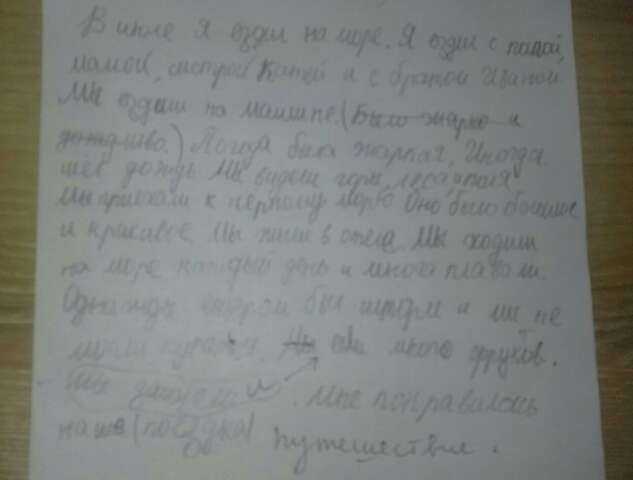 В июле я ездил на море. Я ездил с папой,
мамой, сестрой Катей и с братом Иваном.
Мы ездили на машине (Было жарко и
дождливо.) Погода была жаркая, Иногда
шёл дождь Мы видели горы,
Мы приехали к черному морю Оно было большое
и красивое Мы жили в отеле Мы ходили
на море каждый день и много плавали.
Однажды был шторм и мы не
могли купаться. Мы ели много фруктов.
Мы загорали. Мне понравилось
наше (поездка) путешествие.